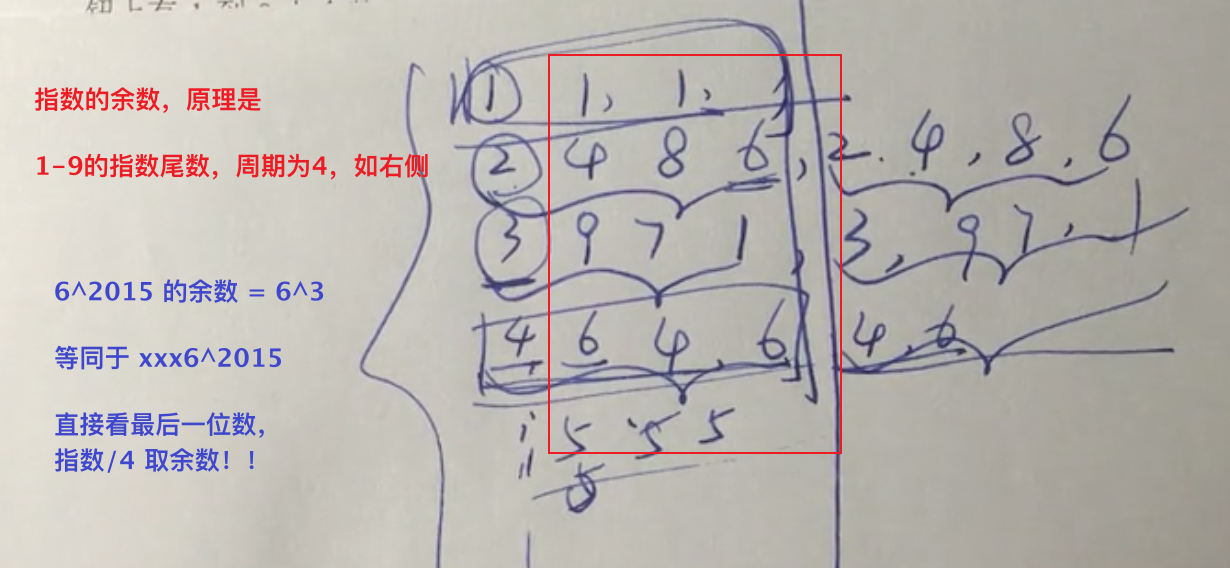 指数的余数，原理是
1-9的指数尾数，周期为4，如右侧
6^2015 的余数 = 6^3
等同于 xxx6^2015
直接看最后一位数，
指数/4 取余数！！
1 1, 1,
2 4 8 6, 2. 4, 8, 6
3 9 7 1, 3, 9 7, 1
4 6 4, 6 4, 6
5 5 5
5